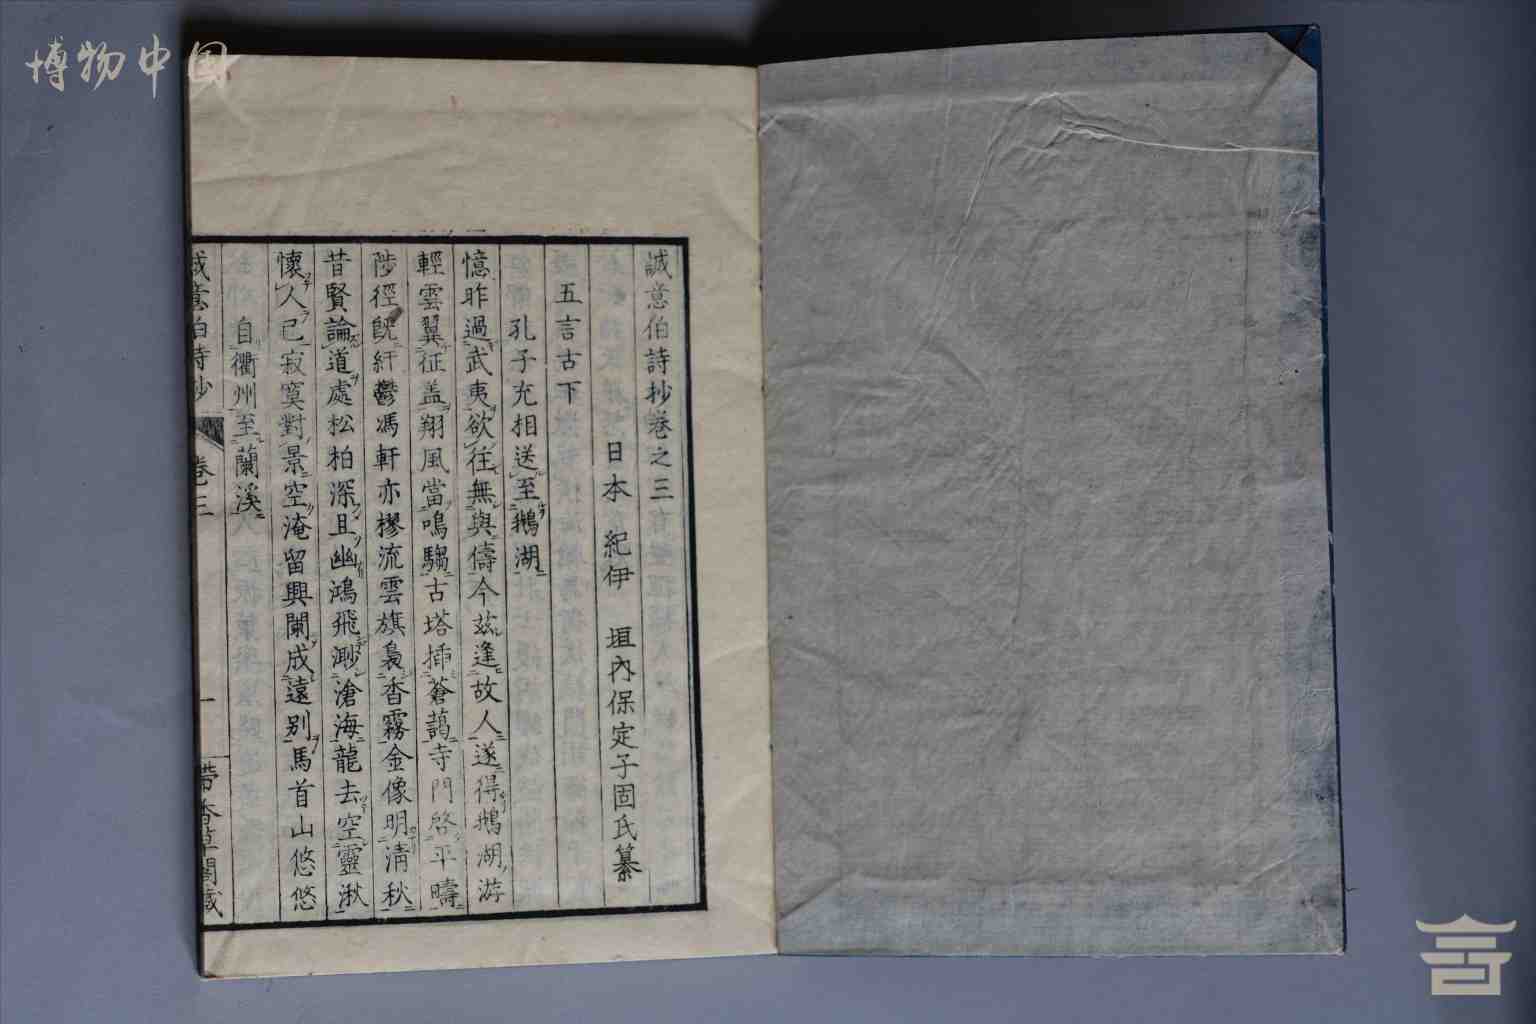 博物中国
誠意伯詩抄卷之三
日本 紀伊 垣內保定子固氏纂
五言古下
孔子充相送至鵝湖
憶昨過武夷欲往無與儔今玆逢故人遂得鵝湖游
輕雲翼征盖翔風當鳴騶古塔揷蒼藹寺門啓平疇
陟徑旣紆鬱馮軒亦樛流雲旗裊香霧金像明淸秋
昔賢論道處松柏深且幽鴻飛渺滄海龍去空靈湫
懷人已寂寞對景空淹留興闌成遠別馬首山悠悠
自衢州至蘭溪
誠意伯詩抄 卷三 一 帶香草閣藏